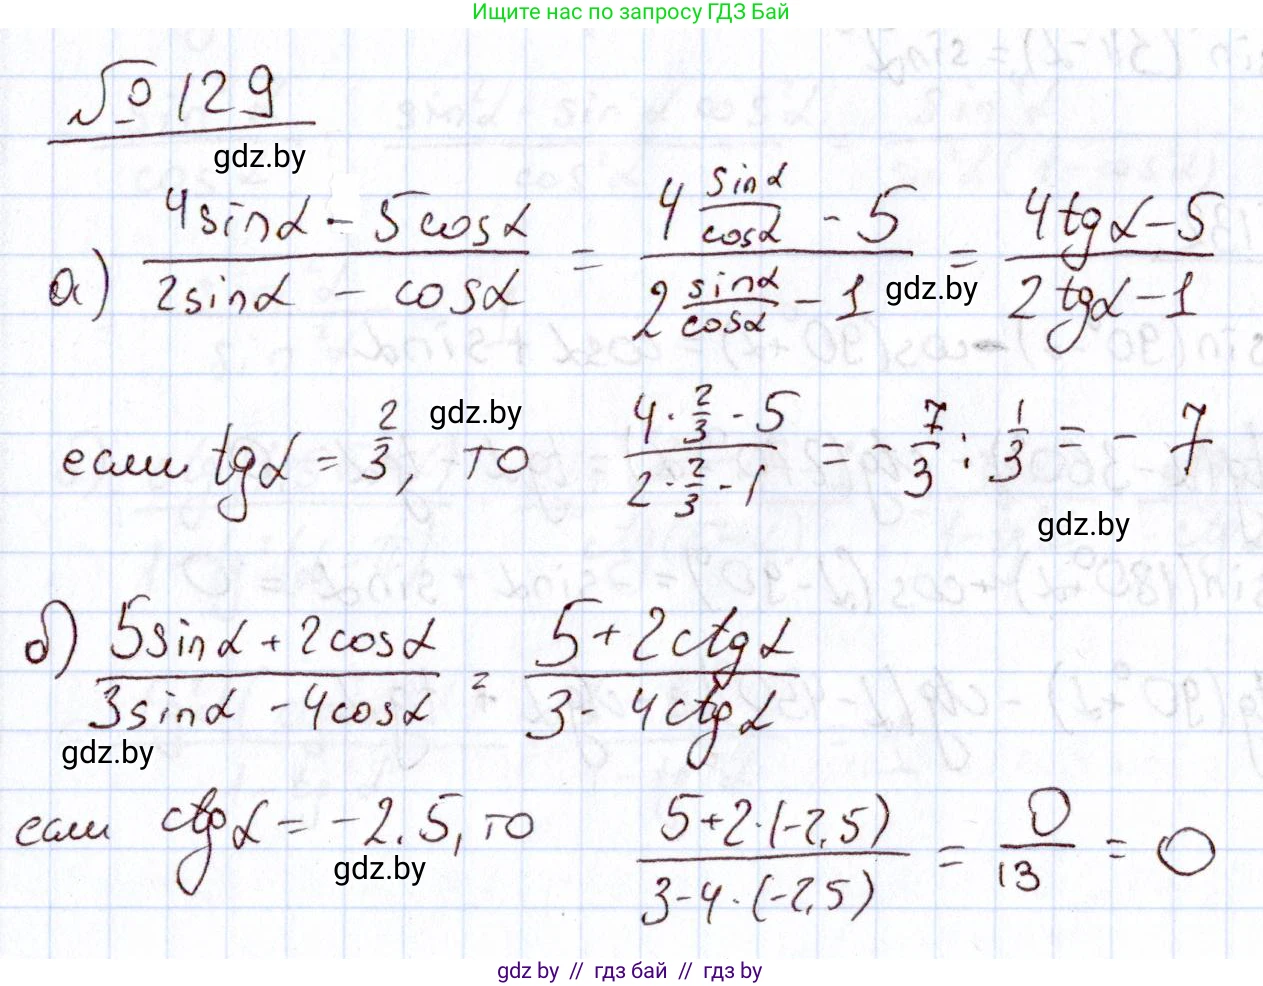 Ищите нас по запросу ГДЗ Бай
№ 129
gdz.by
а) (4sinα - 5cosα)/(2sinα - cosα) = (4 sinα/cosα - 5)/(2 sinα/cosα - 1) = (4tgα - 5)/(2tgα - 1)
gdz.by
если tgα = 2/3, то (4·2/3 - 5)/(2·2/3 - 1) = - 7/3 : 1/3 = - 7
gdz.by
gdz.by
б) (5sinα + 2cosα)/(3sinα - 4cosα) = (5 + 2ctgα)/(3 - 4ctgα)
gdz.by
если ctgα = -2.5, то (5+2·(-2,5))/(3-4·(-2,5)) = 0/13 = 0
gdz.by
gdz.by // гдз бай // гдз by